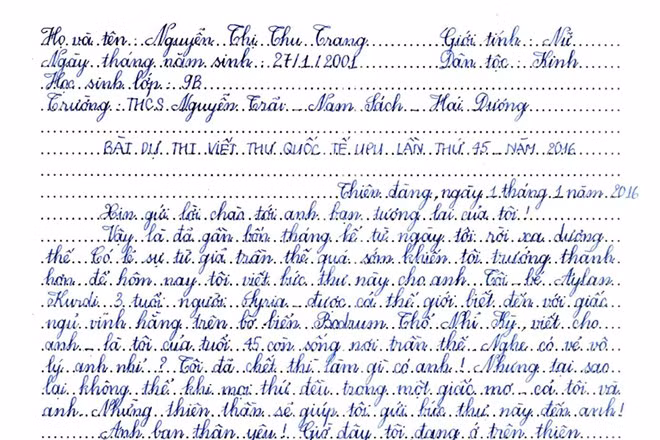 Họ và tên: Nguyễn Thị Thu Trang Giới tính: Nữ
Ngày tháng năm sinh: 27/1/2001 Dân tộc: Kinh
Học sinh lớp: 9B
Trường: THCS Nguyễn Trãi - Nam Sách - Hải Dương
BÀI DỰ THI VIẾT THƯ QUỐC TẾ UPU LẦN THỨ 45 - NĂM 2016
Thiên đàng, ngày 1 tháng 1 năm 2016
Xin gửi lời chào tới anh bạn tương lai của tôi!
Vậy là đã gần bốn tháng kể từ ngày tôi rời xa dương
thế. Có lẽ sự từ giã trần thế quá sớm khiến tôi trưởng thành
hơn để hôm nay tôi viết bức thư này cho anh. Tôi bé Aylan
Kurdi 3 tuổi người Syria được cả thế giới biết đến với giấc
ngủ vĩnh hằng trên bờ biển Bodrum Thổ Nhĩ Kỳ, viết cho
anh - là tôi của tuổi 45 còn sống nơi trần thế. Nghe có vẻ vô
lý anh nhỉ? Tôi đã chết thì làm gì có anh! Nhưng tại sao
lại không thể khi mọi thứ đều trong một giấc mơ cả tôi và
anh. Những thiên thần sẽ giúp tôi gửi bức thư này đến anh!
Anh bạn thân yêu! Giờ đây tôi đang ở trên thiên